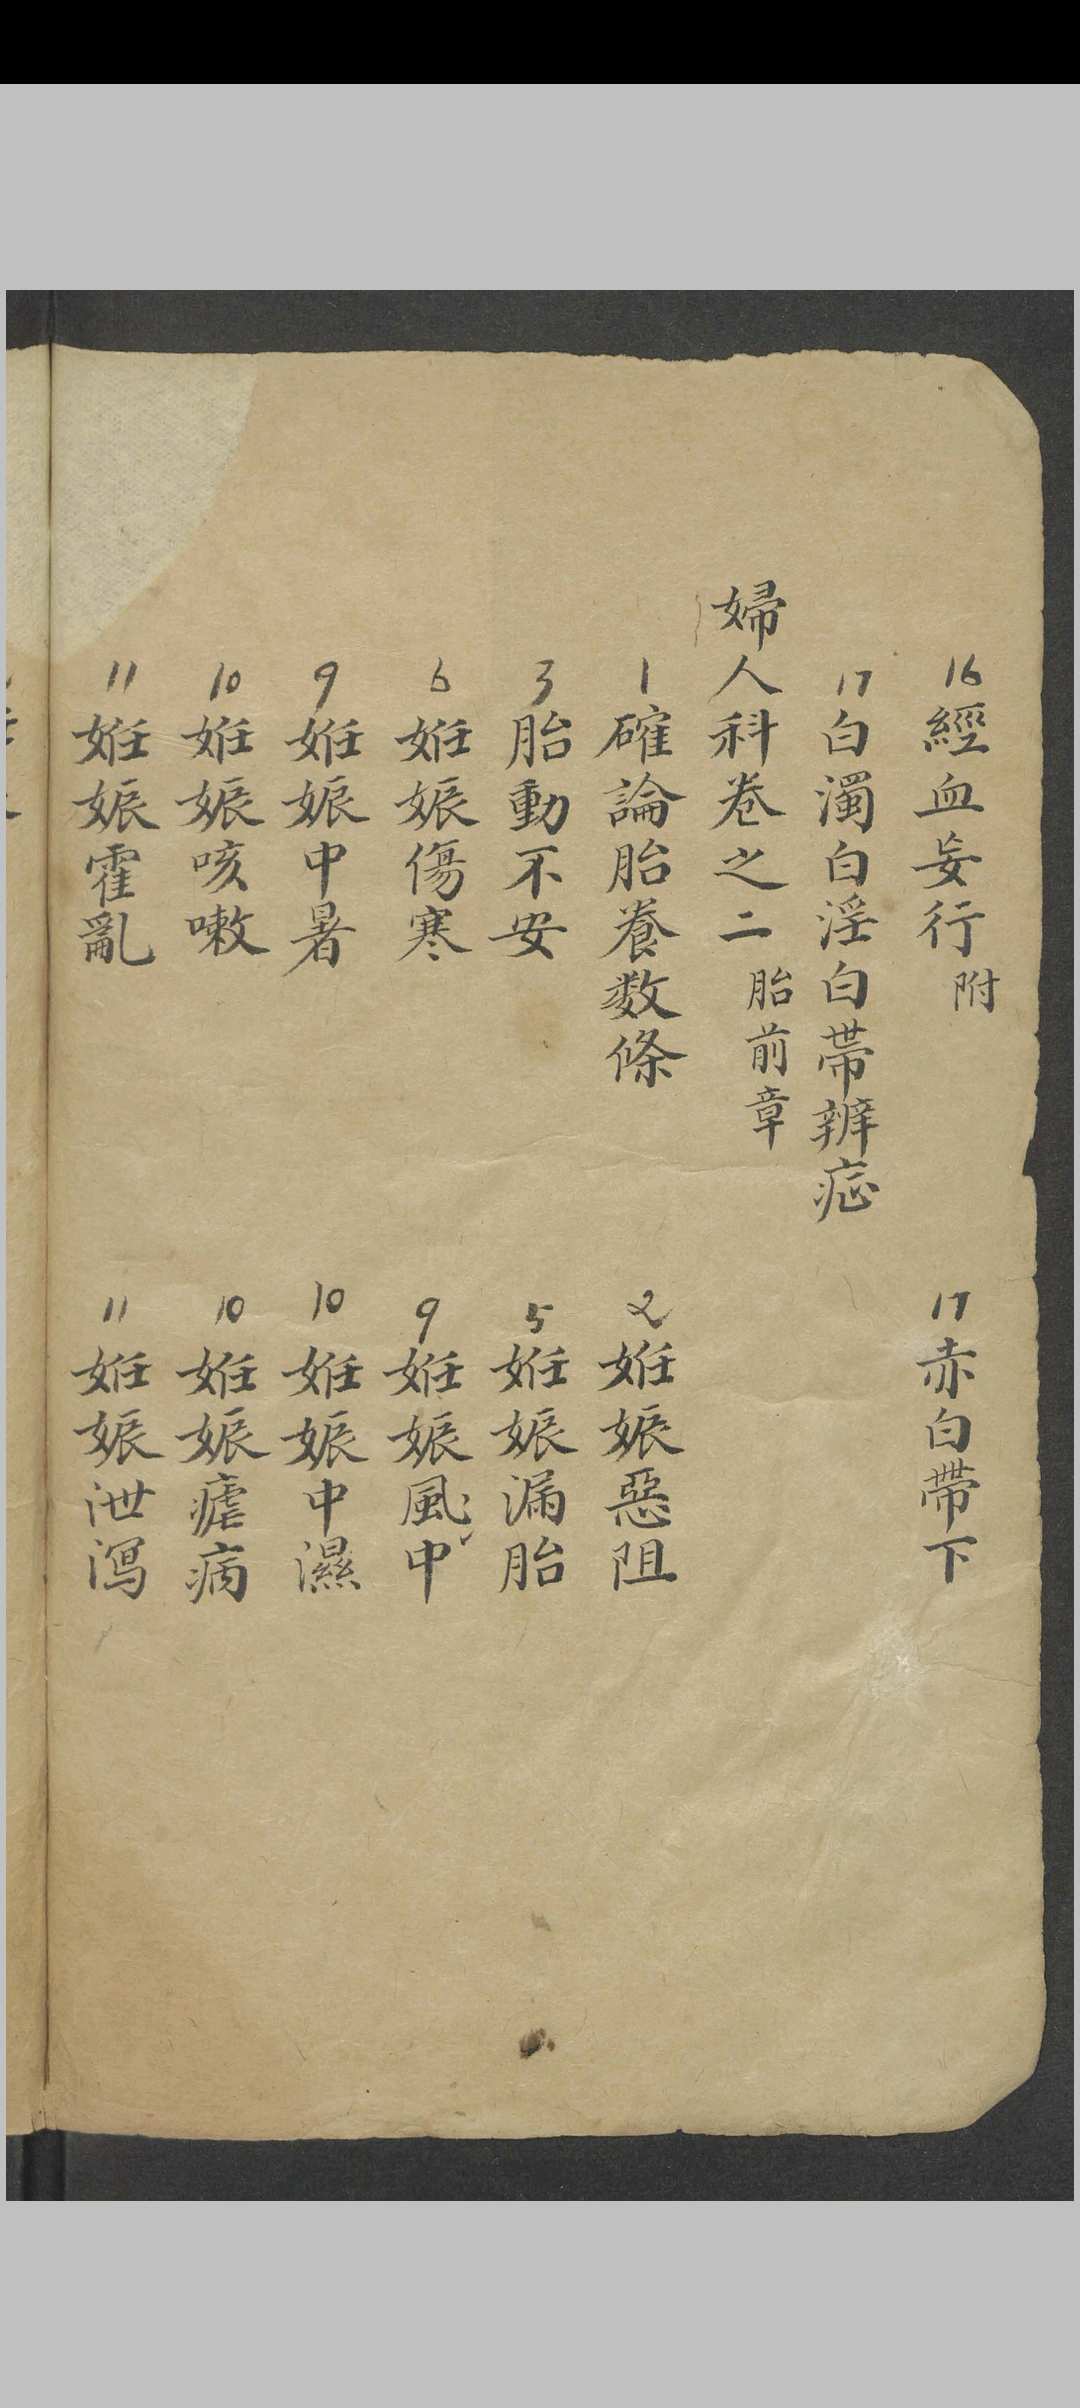 16 經血妄行 附
17 赤白帶下
17 白濁白淫白帶辨症
婦人科卷之二 胎前章
1 確論胎養数條
2 姙娠惡阻
3 胎動不安
5 姙娠漏胎
6 姙娠傷寒
9 姙娠風中
9 姙娠中暑
10 姙娠中濕
10 姙娠咳嗽
10 姙娠瘧病
11 姙娠霍亂
11 姙娠泄瀉